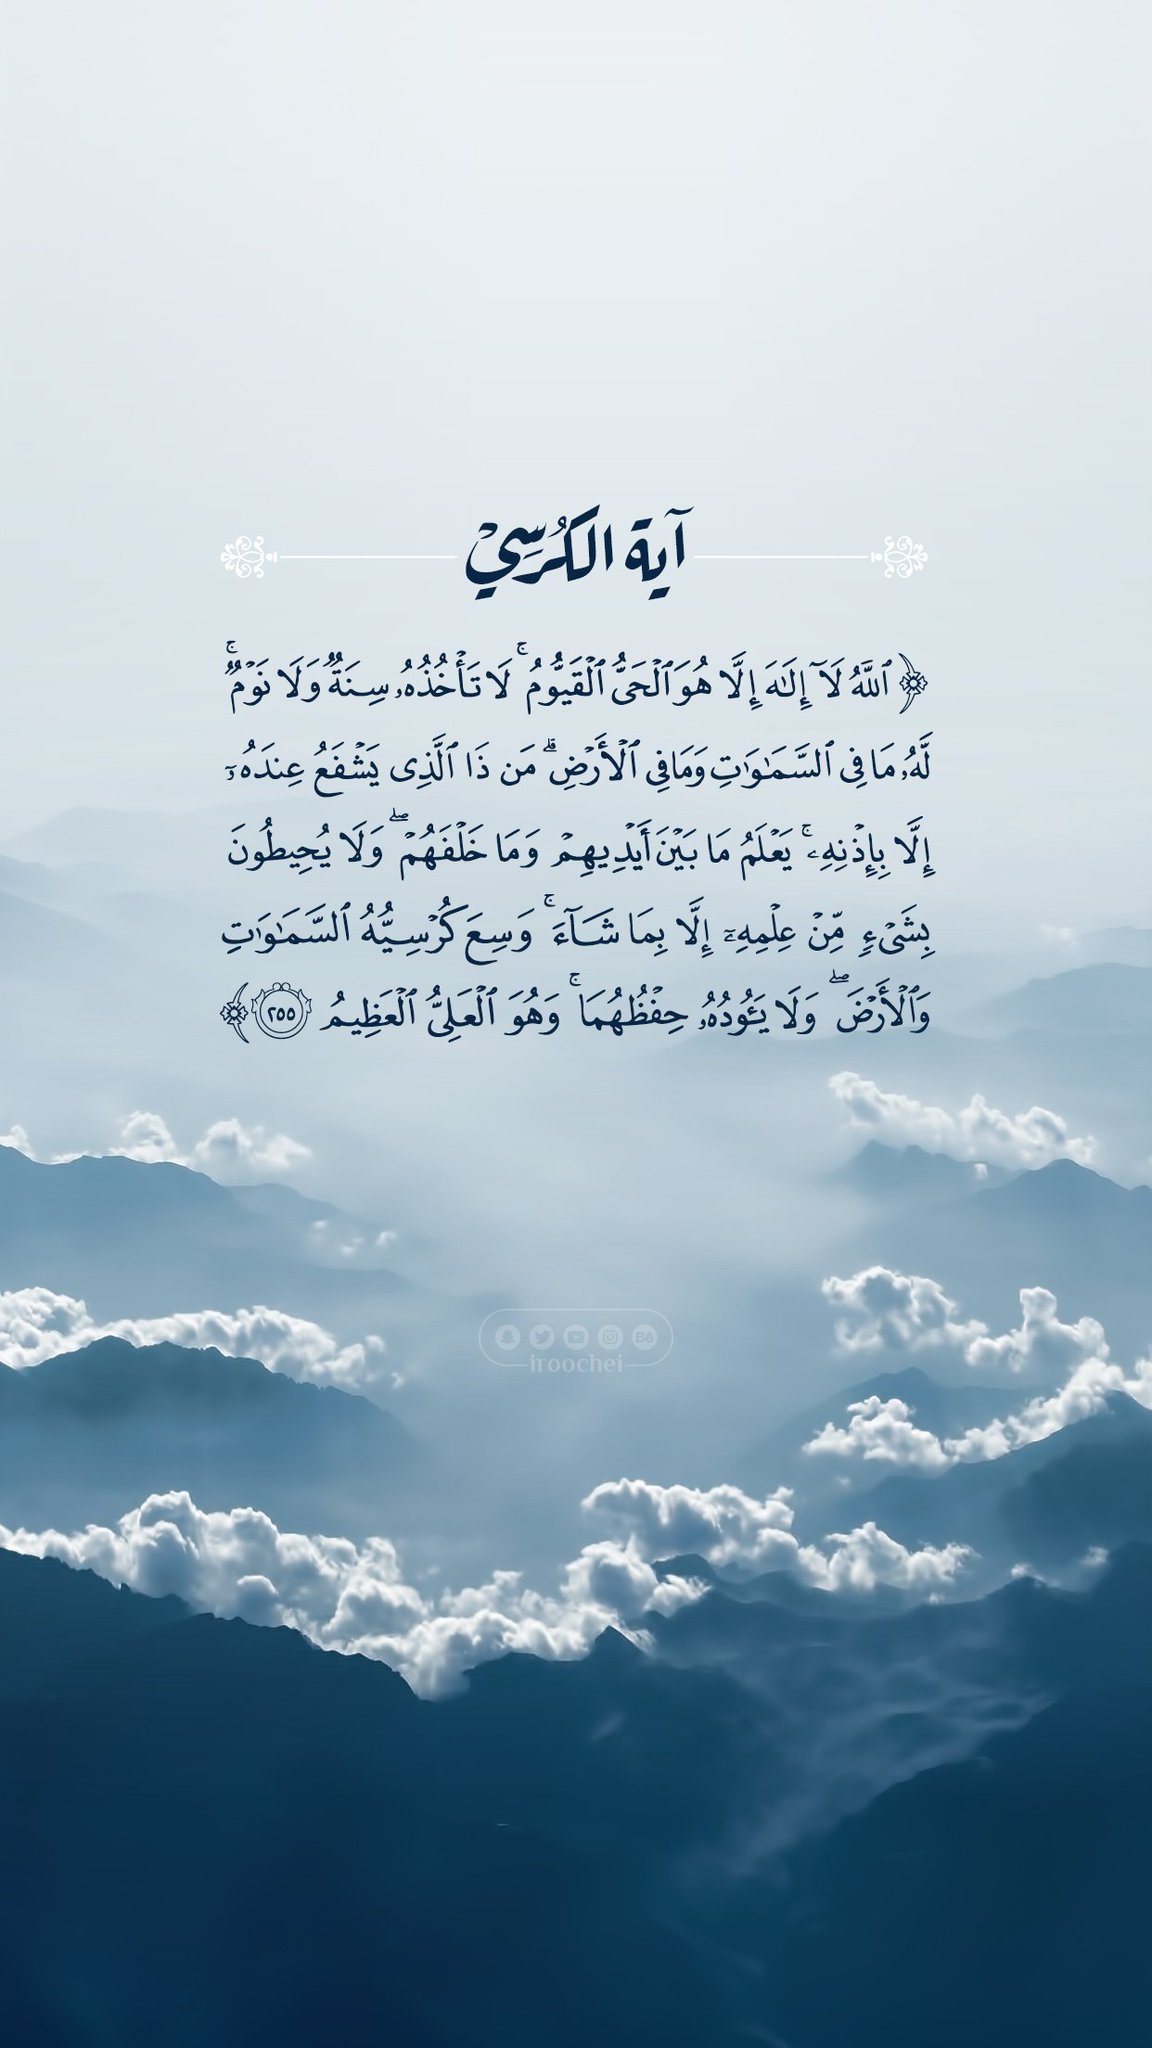 آية الكُرسِي
﴿ٱللَّهُ لَآ إِلَٰهَ إِلَّا هُوَ ٱلْحَىُّ ٱلْقَيُّومُ ۚ لَا تَأْخُذُهُۥ سِنَةٌ وَلَا نَوْمٌ ۚ
لَّهُۥ مَا فِى ٱلسَّمَٰوَٰتِ وَمَا فِى ٱلْأَرْضِ ۗ مَن ذَا ٱلَّذِى يَشْفَعُ عِندَهُۥٓ
إِلَّا بِإِذْنِهِۦ ۚ يَعْلَمُ مَا بَيْنَ أَيْدِيهِمْ وَمَا خَلْفَهُمْ ۖ وَلَا يُحِيطُونَ
بِشَىْءٍ مِّنْ عِلْمِهِۦٓ إِلَّا بِمَا شَآءَ ۚ وَسِعَ كُرْسِيُّهُ ٱلسَّمَٰوَٰتِ
وَٱلْأَرْضَ ۖ وَلَا يَـُٔودُهُۥ حِفْظُهُمَا ۚ وَهُوَ ٱلْعَلِىُّ ٱلْعَظِيمُ ٢٥٥﴾
Bē
iroochei